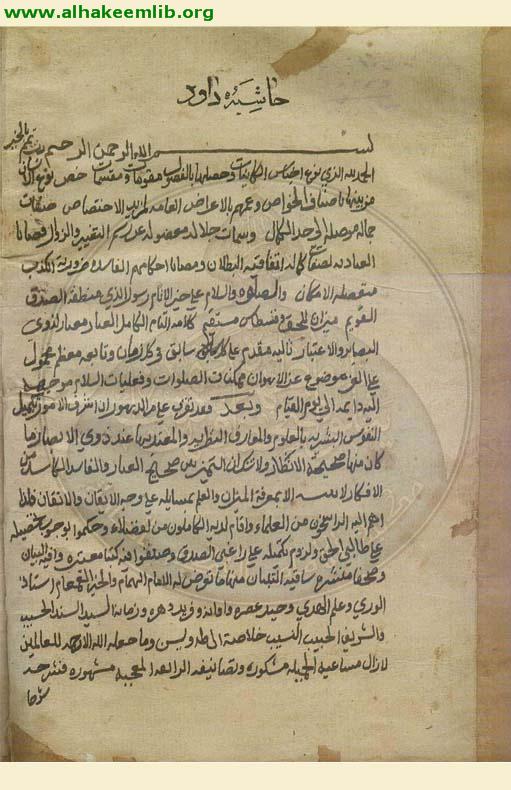 www.alhakeemlib.org
حاشية داود
بسم الله الرحمن الرحيم رب تمم بالخير
الحمد لله الذي نوع اجناس الكائنات وحصلها بالفصول مقومات ومقسمات خص نوع الانسان
من بينها باصناف الخواص وعمهم بالاعراض العامة لمزيد الاختصاص صفات
جماله موصلة الى حد الكمال وسمات جلاله معصومة عن رسم التغيير والزوال قضايا
العنادية لصفات كماله اتفاقية البطلان وقضايا احكامهم الفاسدة ضرورية الكذب
منفصلة الامكان والصلوة والسلام على خير الانام رسوله الذي منطقه الصدق
القويم ميزان للحق وقسطاس مستقيم كلامه التام الكامل العيار معيار لذوي
البصاير والاعتبار تاليه مقدم على كل سابق في كل زمان وتابعه معظم محمول
على العز موضوع عن الهوان ممكنات الصلوات وفعليات السلام موجهة
اليه دايمة الى يوم القيام وبعد فقد تقرر على مر الدهور ان اشرف الامور تكميل
النفوس البشرية بالعلوم والمعارف النظرية والمعتد بها عند ذوي الابصار ما
كان منها صحيحة الانظار ولا شك ان التميز بين صحيح العيار والفاسد الكاسد من
الافكار لا الا بمعرفة الميزان والعلم بمسايله على وجه الايقان والاتقان فلذا
اهتم اليه الراسخون من العلماء واقام لديه الكاملون من الفضلاء وحكموا بوجوب تحصيله
على طالبي الحق ولزوم تكميله على راغبي الصدق وصنفوا فيه كتبا معتبرة وافية البيان
وصحفا منتشرة شافية التبيان منها ما توجه له الامام الهمام والحبر القمقام استاد
الورى وعلم الهدى وحيد عصره واوانه وفريد دهره وزمانه السيد السند الحسيب
والشريف الحبيب النسيب خلاصة ال طه ويس وما جعله الله الا رحمة للعالمين
لا زال مساعيه الجميلة مشكورة وتصانيفه الرائعة المعجبة مشهورة